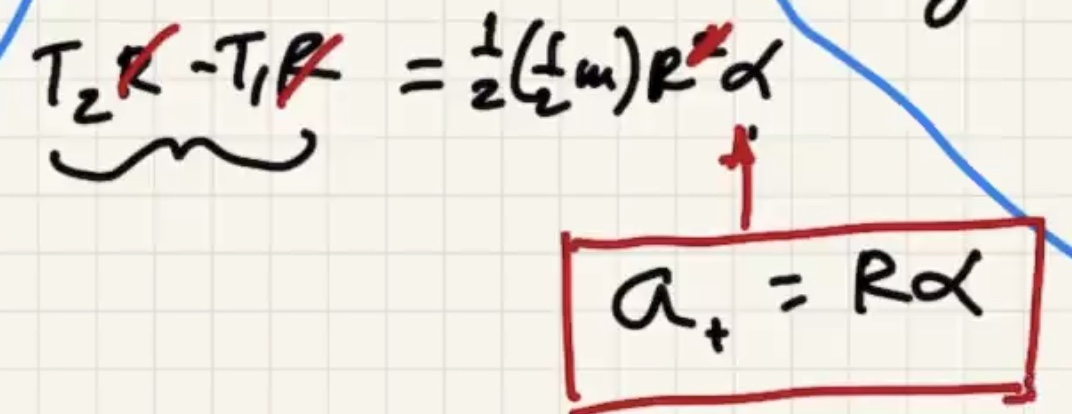 T₂R - T₁R = ½(½m)R²α
aₜ = Rα